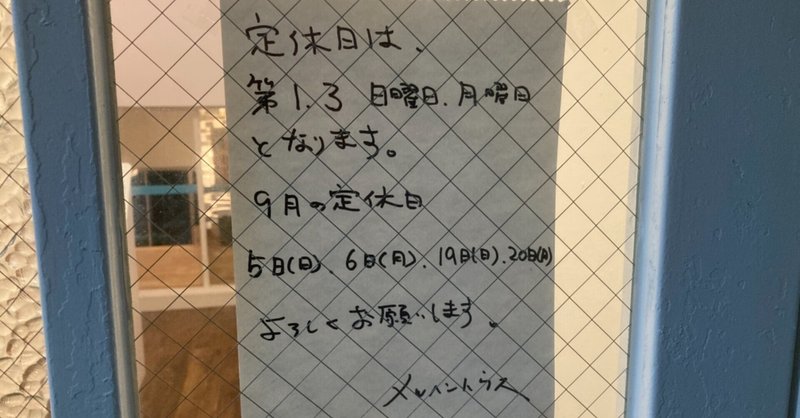 定休日は、
第1.3 日曜日.月曜日
となります。
9月の定休日
5日(日).6日(月).19日(日).20日(月)
よろしくお願いします。